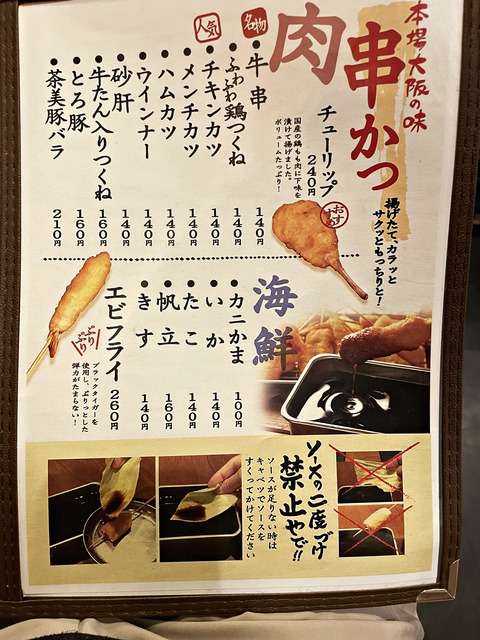 本場大阪の味
串かつ
揚げたて、カラッと
サクッともっちりと!
肉
チューリップ 240円
国産の鶏もも肉に下味を
漬けて揚げました。
ボリュームたっぷり!
おすすめ
名物
• 牛串 140円
• ふわふわ鶏つくね 140円
人気
• チキンカツ 140円
• メンチカツ 140円
• ハムカツ 140円
• ウインナー 140円
• 砂肝 140円
• 牛たん入りつくね 160円
• とろ豚 160円
• 茶美豚バラ 210円
海鮮
• カニかま 100円
• いか 140円
• たこ 140円
• 帆立 160円
• きす 140円
エビフライ 260円
ぷりぷり
ブラックタイガーを
使用し、ぷりっとした
弾力がたまらない!
ソースの二度づけ
禁止やで!!
ソースが足りない時は
キャベツでソースを
すくってかけてください